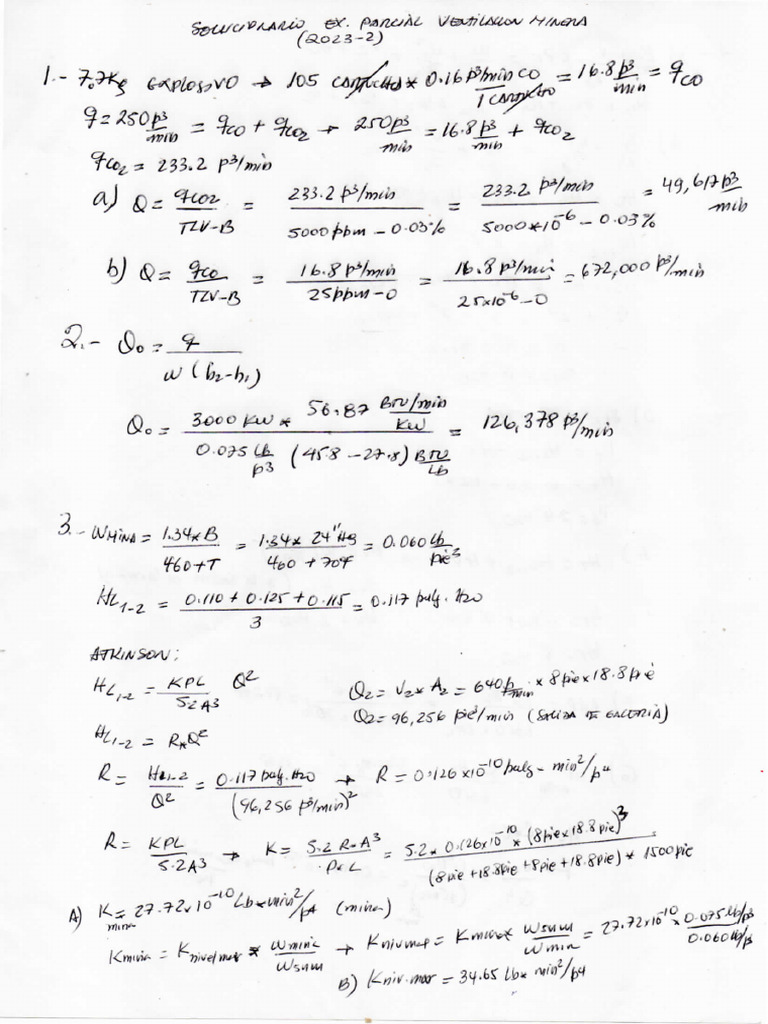 SOLUCIONARIO EX. PARCIAL VENTILACION MINERA
(2023-2)
1.- 7.7Kg EXPLOSIVO → 105 CARTUCHO * 0.16 p³/min CO / 1 CARTUCHO = 16.8 p³/min = qCO
q = 250 p³/min = qCO + qCO2 → 250 p³/min = 16.8 p³/min + qCO2
qCO2 = 233.2 p³/min
a) Q = qCO2 / TLV-B = 233.2 p³/min / 5000 ppm - 0.03% = 233.2 p³/min / 5000*10⁻⁶ - 0.03% = 49,617 p³/min
b) Q = qCO / TLV-B = 16.8 p³/min / 25 ppm - 0 = 16.8 p³/min / 25x10⁻⁶ - 0 = 672,000 p³/min
2.- Q0 = q / w (h2-h1)
Q0 = 3000 KW * 56.87 BTU/min/KW / 0.075 Lb/p³ (45.8 - 27.8) BTU/Lb = 126,378 p³/min
3.- WMINA = 1.34*B / 460+T = 1.34* 24"Hg / 460 + 70F = 0.060 Lb/pie³
HL1-2 = 0.110 + 0.125 + 0.115 / 3 = 0.117 pulg. H2O
ATKINSON:
HL1-2 = KPL / 5.2A³ Q²
Q2 = V2 * A2 = 640 p/min * 8 pie x 18.8 pie
Q2 = 96,256 pie³/min (SALIDA DE GALERIA)
HL1-2 = R*Q²
R = HL1-2 / Q² = 0.117 pulg. H2O / (96,256 p³/min)² → R = 0.126x10⁻¹⁰ pulg - min²/p⁴
R = KPL / 5.2A³ → K = 5.2 R*A³ / P*L = 5.2 * 0.126x10⁻¹⁰ * (8 pie x 18.8 pie)³ / (8 pie + 18.8 pie + 8 pie + 18.8 pie) * 1500 pie
A) Kmina = 27.72x10⁻¹⁰ Lb*min²/p⁴ (mina)
Kmina = Knivel mar * Wmina / Wsnm → Kniv mar = Kmina * Wsnm / Wmin = 27.72x10⁻¹⁰ * 0.075 Lb/p³ / 0.060 Lb/p³
B) Kniv. mar = 34.65 Lb* min²/p⁴